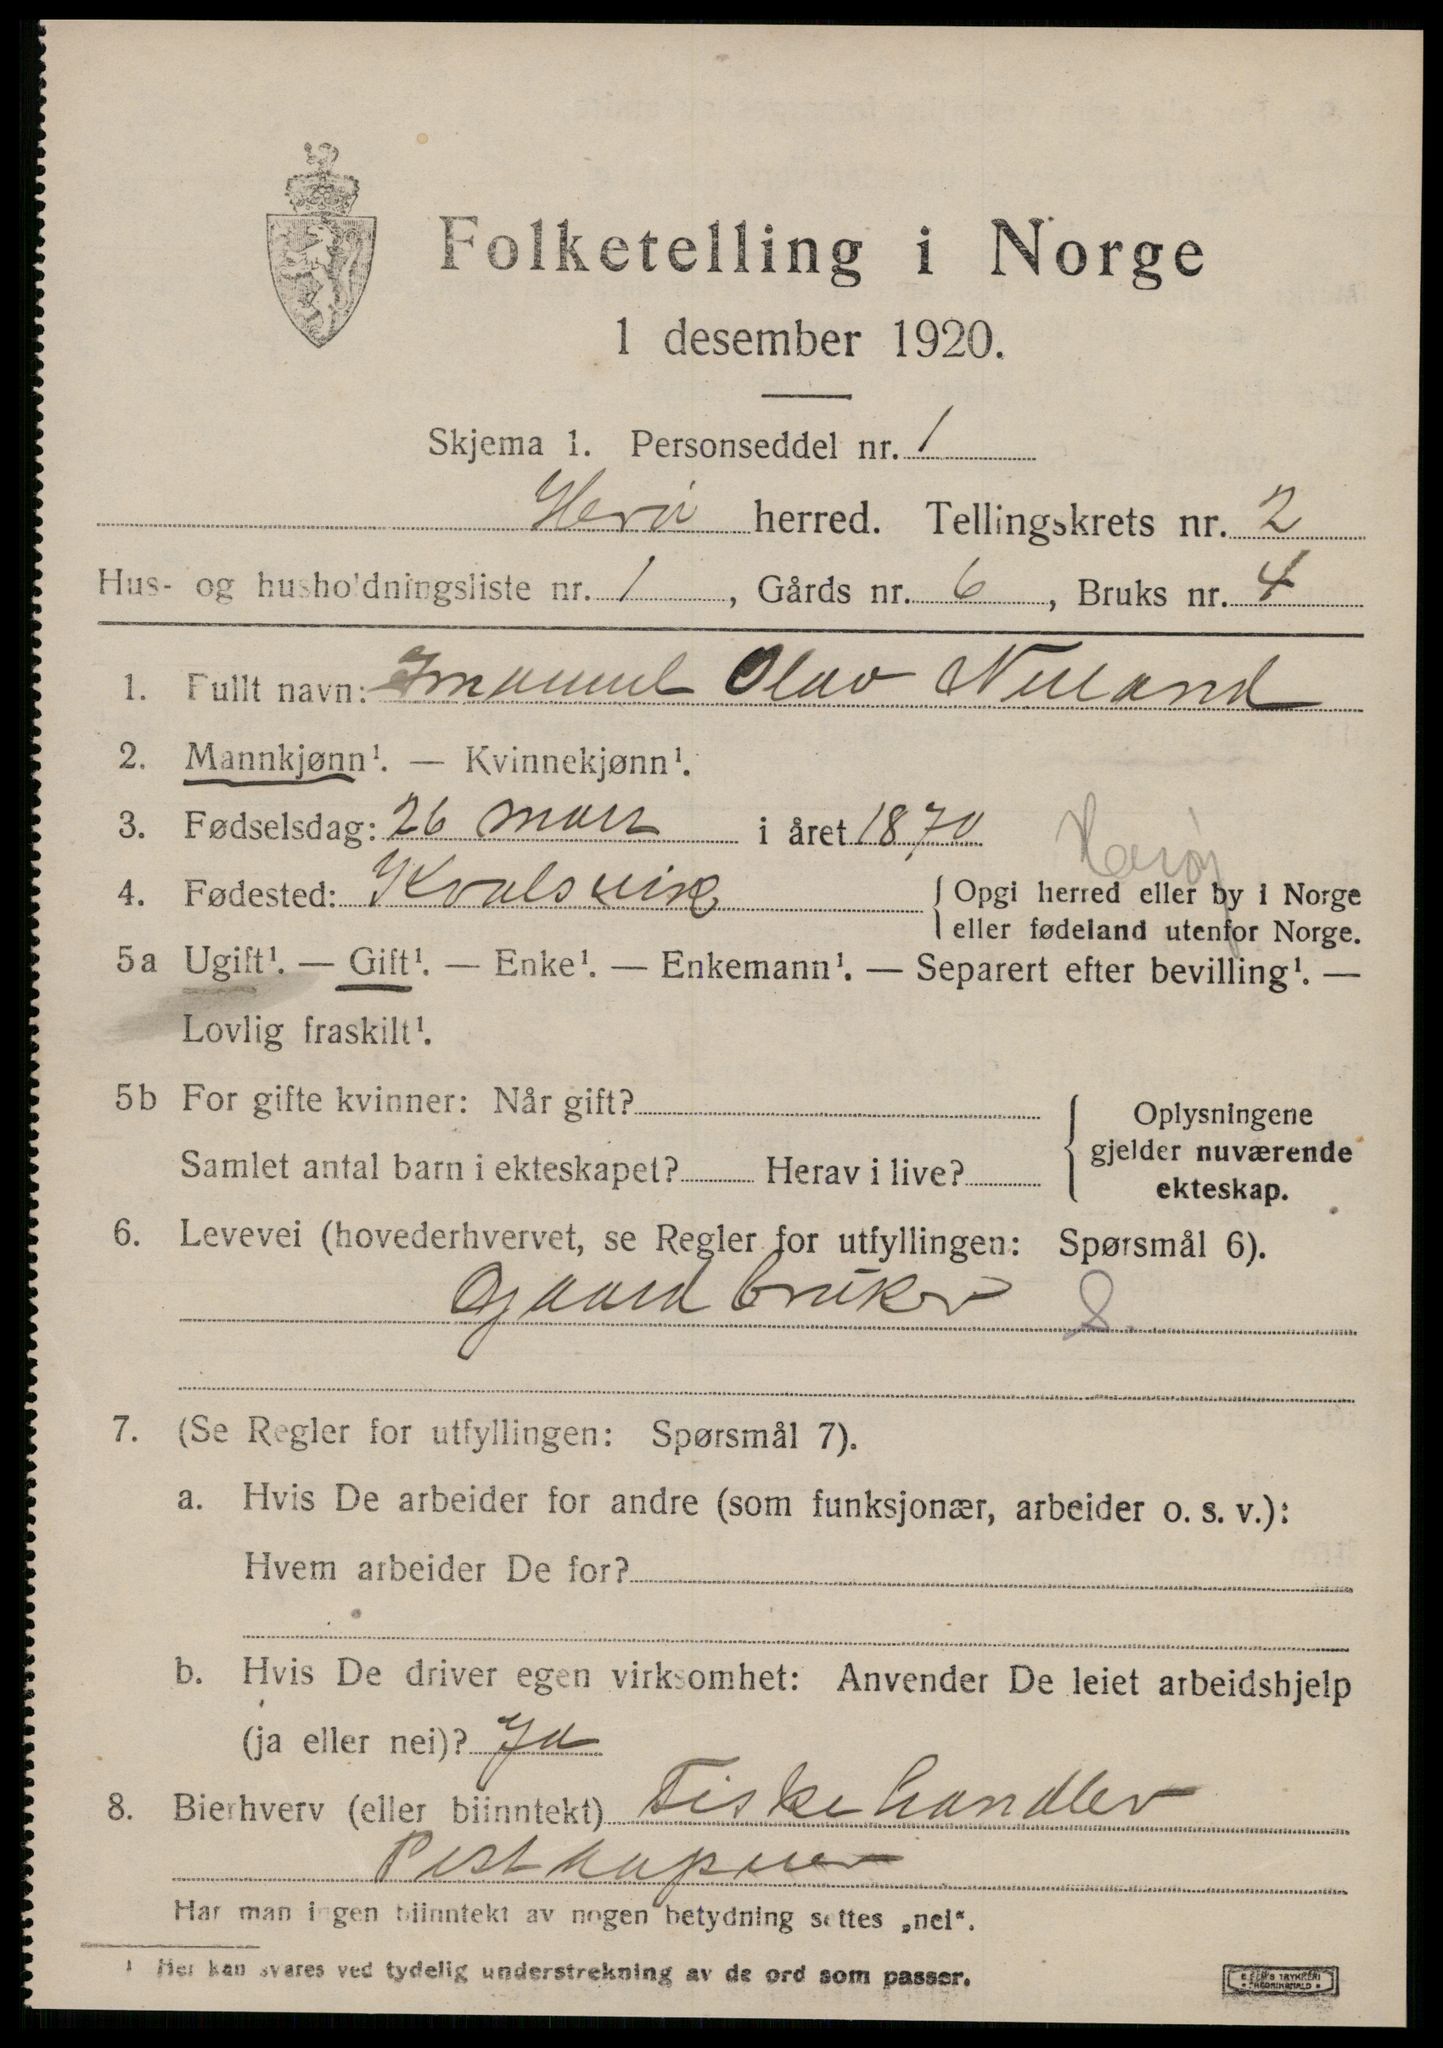 Folketelling i Norge
1 desember 1920.
Skjema 1. Personseddel nr. 1
Herø herred. Tellingskrets nr. 2
Hus- og husholdningsliste nr. 1, Gårds nr. 6, Bruks nr. 4
1. Fullt navn: Imanuel Olav Nuland
2. Mannkjønn¹. — Kvinnekjønn¹.
3. Fødselsdag: 26 mars i året 1870
Herøj
4. Fødested: Kvalsvik { Opgi herred eller by i Norge
eller fødeland utenfor Norge.
5a Ugift¹. — Gift¹. — Enke¹. — Enkemann¹. — Separert efter bevilling¹. —
Lovlig fraskilt¹.
5b For gifte kvinner: Når gift? { Oplysningene
gjelder nuværende
Samlet antal barn i ekteskapet? Herav i live?
ekteskap.
6. Levevei (hovederhvervet, se Regler for utfyllingen: Spørsmål 6).
Gaardbruker S.
7. (Se Regler for utfyllingen: Spørsmål 7).
a. Hvis De arbeider for andre (som funksjonær, arbeider o. s. v.):
Hvem arbeider De for?
b. Hvis De driver egen virksomhet: Anvender De leiet arbeidshjelp
(ja eller nei)? Ja
8. Bierhverv (eller biinntekt) Fiskehandler
Har man ingen biinntekt av nogen betydning settes „nei“.
¹ Her kan svares ved tydelig understrekning av de ord som passer.